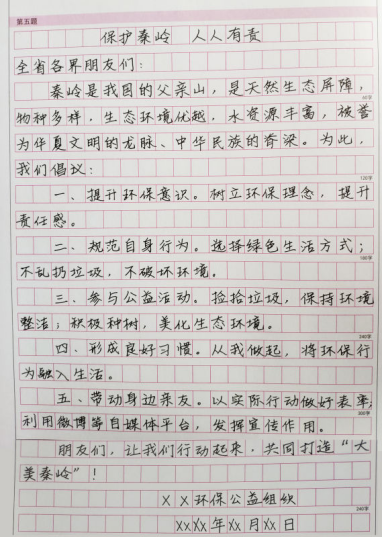 第五题
保护秦岭 人人有责
全省各界朋友们：
秦岭是我国的父亲山，是天然生态屏障，
物种多样，生态环境优越，水资源丰富，被誉
为华夏文明的龙脉、中华民族的脊梁。为此，
我们倡议：
一、提升环保意识。树立环保理念，提升
责任感。
二、规范自身行为。选择绿色生活方式；
不乱扔垃圾，不破坏环境。
三、参与公益活动。捡捡垃圾，保持环境
整洁；积极种树，美化生态环境。
四、形成良好习惯。从我做起，将环保行
为融入生活。
五、带动身边亲友。以实际行动做好表率；
利用微博等自媒体平台，发挥宣传作用。
朋友们，让我们行动起来，共同打造“大
美秦岭”！
××环保公益组织
××××年××月××日